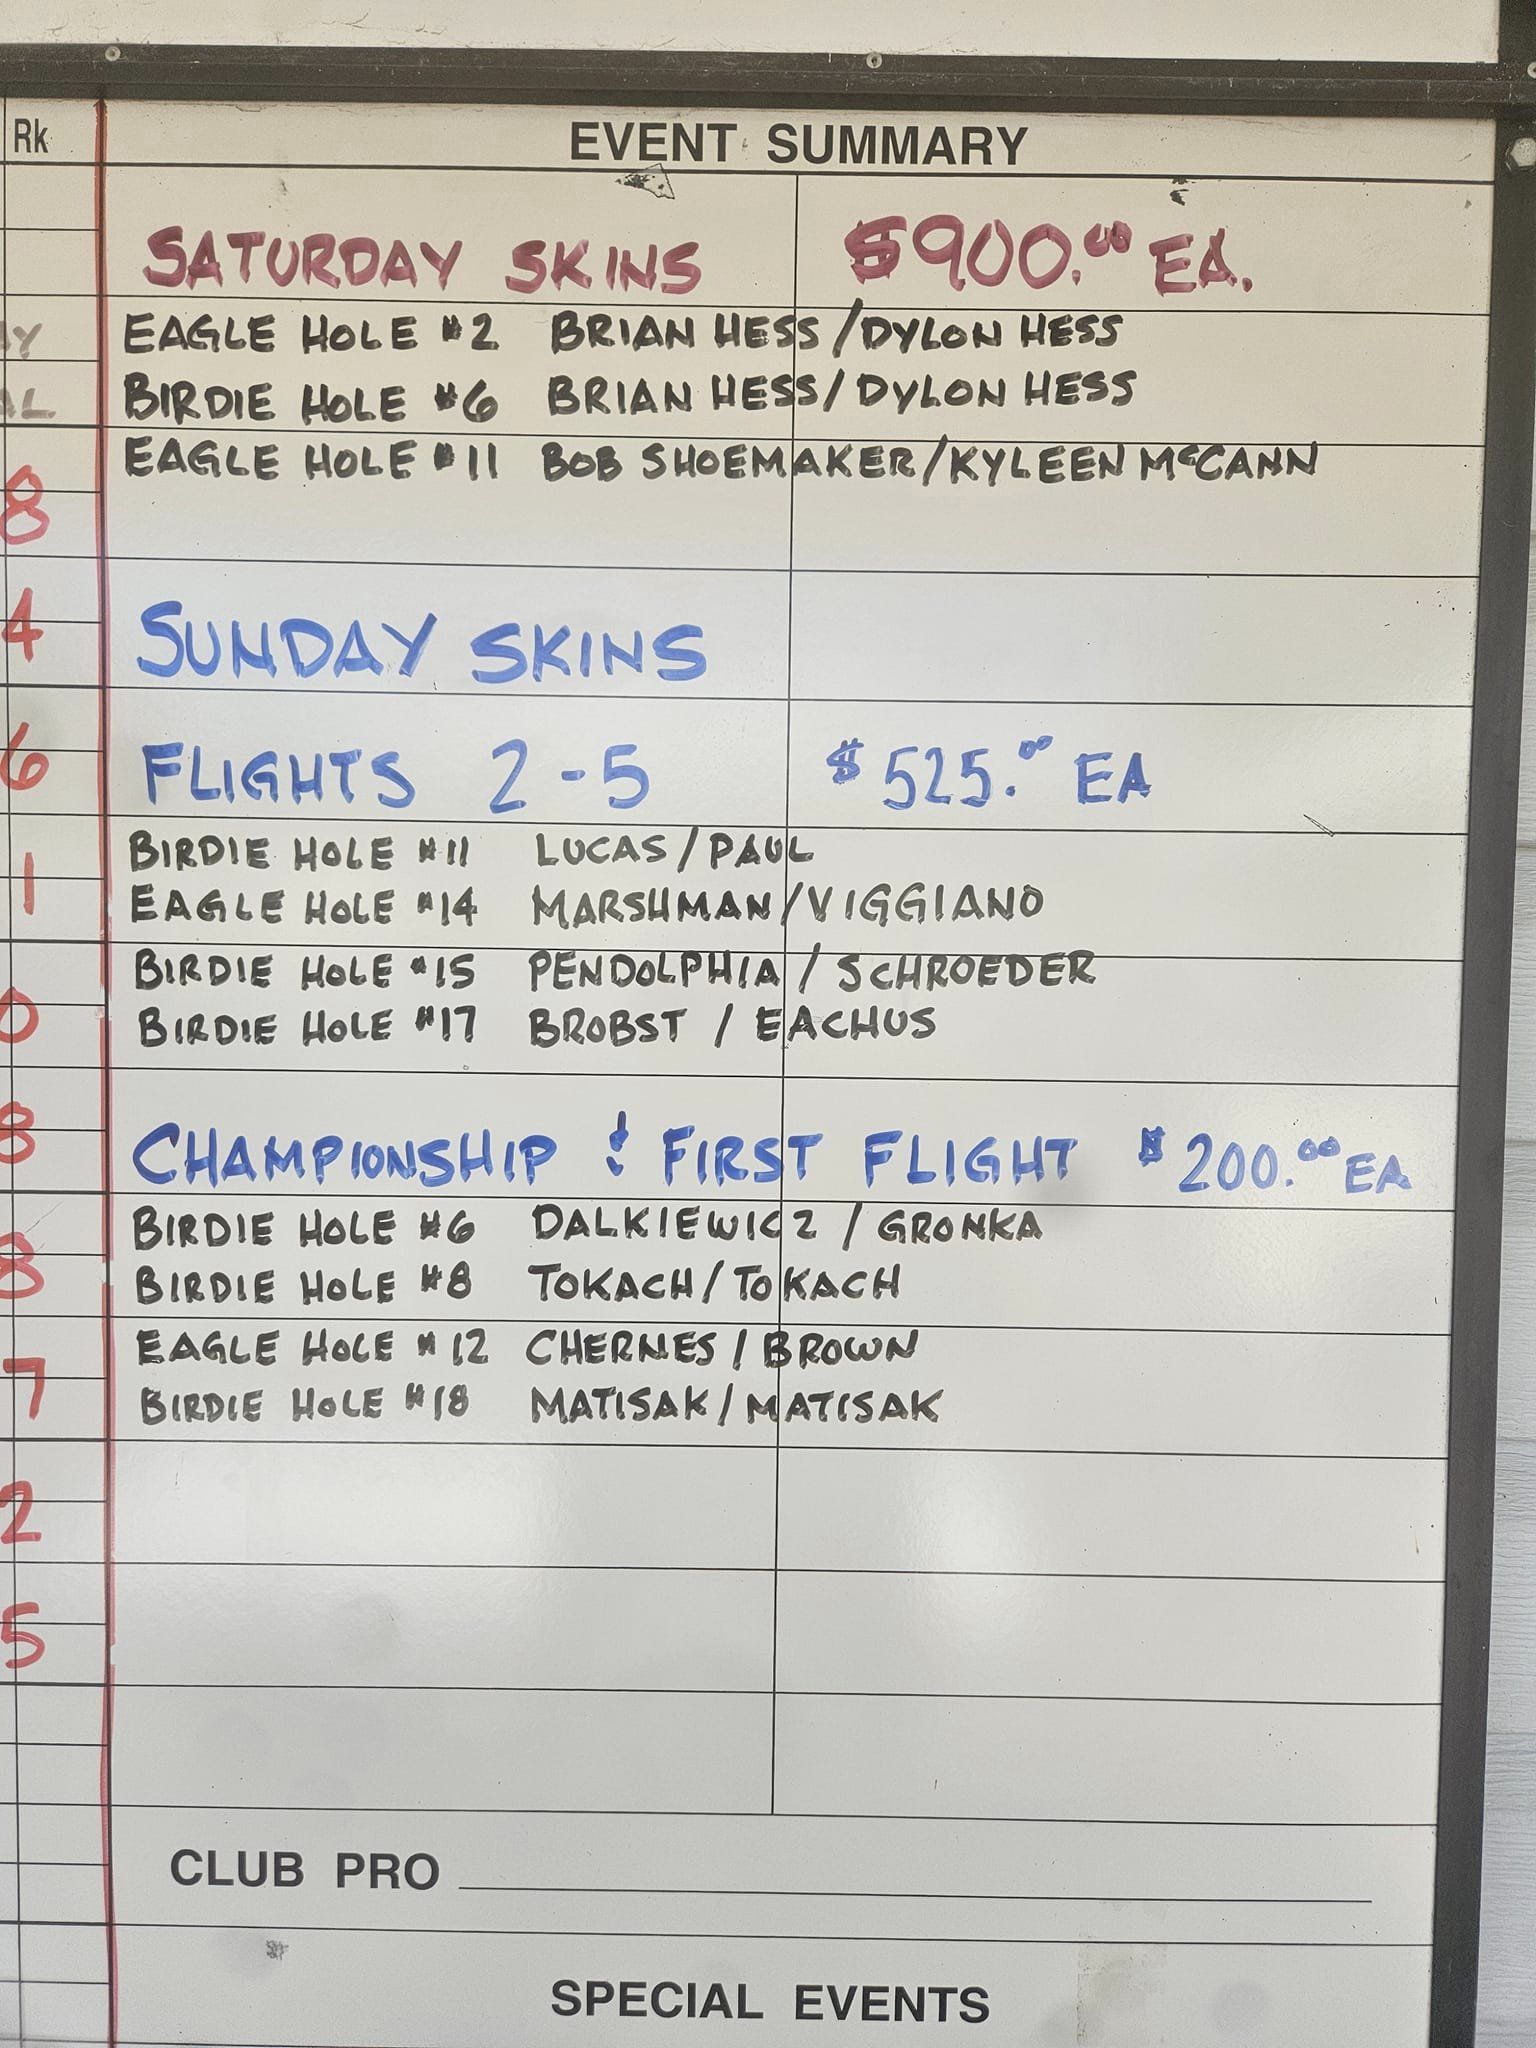 Rk
EVENT SUMMARY
SATURDAY SKINS $900.00 EA.
EAGLE HOLE #2 BRIAN HESS/DYLON HESS
BIRDIE HOLE #6 BRIAN HESS/DYLON HESS
EAGLE HOLE #11 BOB SHOEMAKER/KYLEEN McCANN
8
SUNDAY SKINS
4
FLIGHTS 2-5 $525.00 EA
6
BIRDIE HOLE #11 LUCAS/PAUL
1
EAGLE HOLE #14 MARSHMAN/VIGGIANO
BIRDIE HOLE #15 PENDOLPHIA/SCHROEDER
0
BIRDIE HOLE #17 BROBST/EACHUS
8
CHAMPIONSHIP & FIRST FLIGHT $200.00 EA
BIRDIE HOLE #6 DALKIEWICZ/GRONKA
8
BIRDIE HOLE #8 TOKACH/TOKACH
EAGLE HOLE #12 CHERNES/BROWN
7
BIRDIE HOLE #18 MATISAK/MATISAK
2
5
CLUB PRO
SPECIAL EVENTS